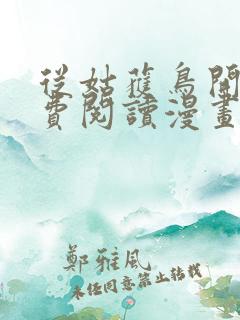 從姑獲鳥開
費閱讀漫畫
鄭雅風
未經同意禁止轉載